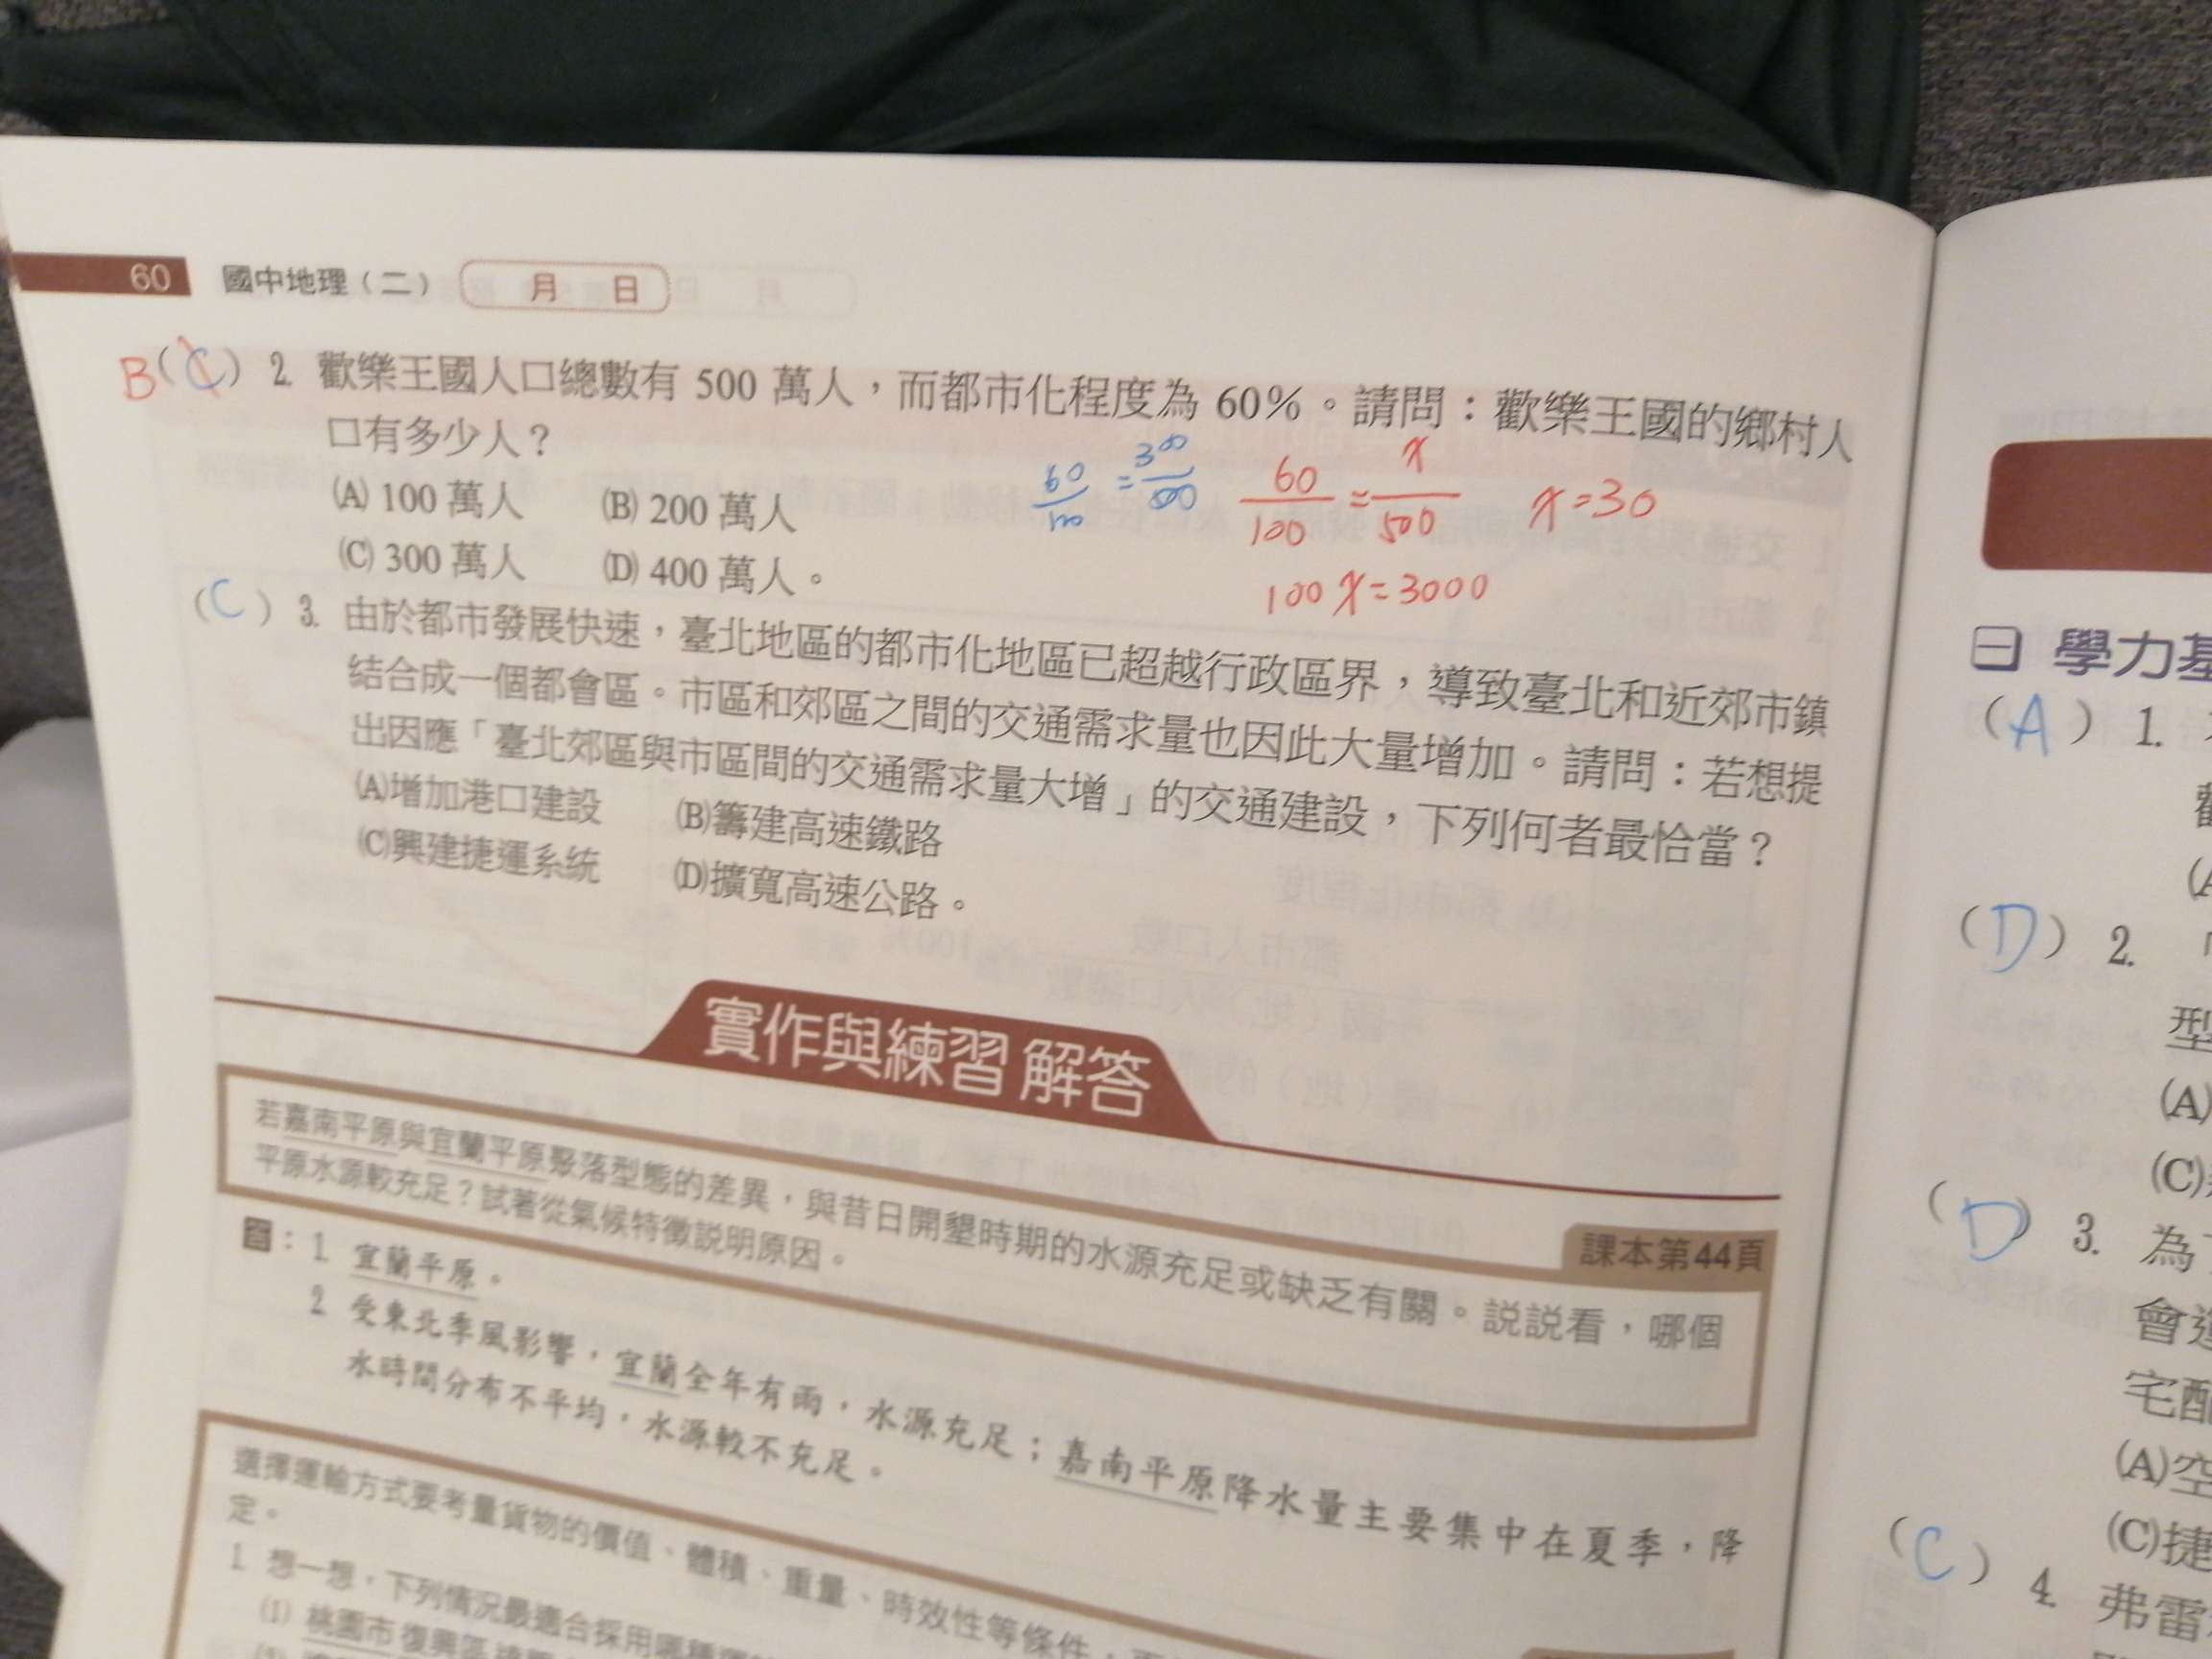 60 國中地理（二） 月 日
B(C) 2. 歡樂王國人口總數有 500 萬人，而都市化程度為 60%。請問：歡樂王國的鄉村人
口有多少人？
(A) 100 萬人 (B) 200 萬人
(C) 300 萬人 (D) 400 萬人。
60/100 = 300/500
60/100 = x/500 x=30
100x=3000
(C) 3. 由於都市發展快速，臺北地區的都市化地區已超越行政區界，導致臺北和近郊市鎮
結合成一個都會區。市區和郊區之間的交通需求量也因此大量增加。請問：若想提
出因應「臺北郊區與市區間的交通需求量大增」的交通建設，下列何者最恰當？
(A)增加港口建設 (B)籌建高速鐵路
(C)興建捷運系統 (D)擴寬高速公路。
實作與練習 解答
課本第44頁
若嘉南平原與宜蘭平原聚落型態的差異，與昔日開墾時期的水源充足或缺乏有關。説説看，哪個
平原水源較充足？試著從氣候特徵説明原因。
答：1. 宜蘭平原。
2. 受東北季風影響，宜蘭全年有雨，水源充足；嘉南平原降水量主要集中在夏季，降
水時間分布不平均，水源較不充足。
選擇運輸方式要考量貨物的價值、體積、重量、時效性等條件，
定。
1. 想一想，下列情況最適合採用哪種運
(1) 桃園市復興區
學力基
(A) 1.
(A
(D) 2.
型
(A)
(C)
(D) 3. 為
會
宅配
(A)空
(C)捷
(C) 4. 弗雷